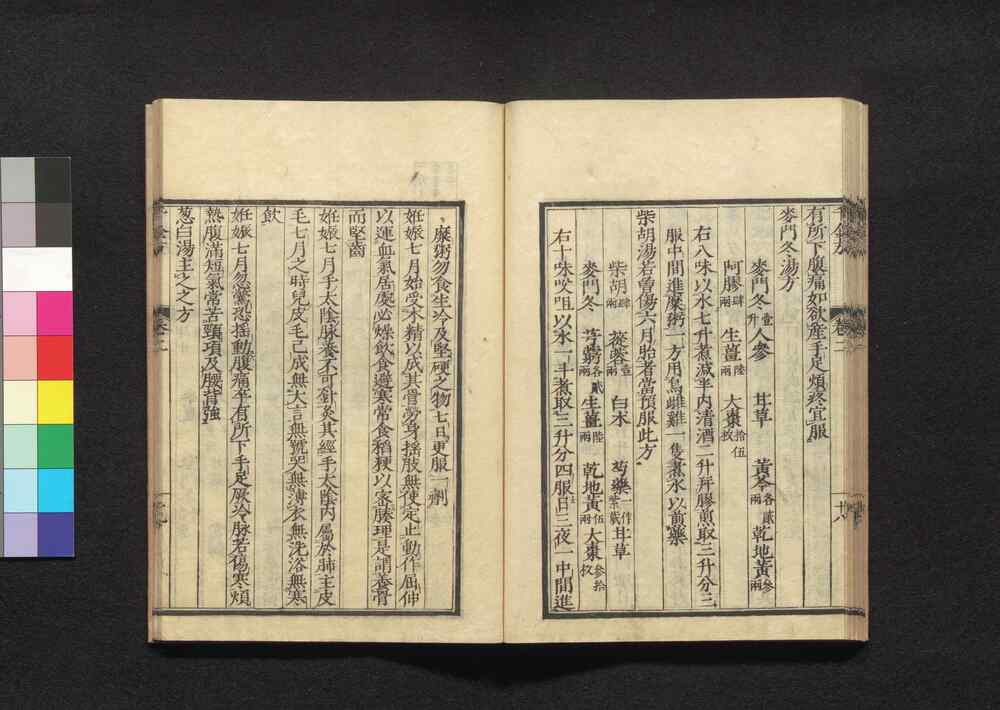 有所下腹痛如欲産手足煩疼宜服
麥門冬湯方
麥門冬壹升 人參 甘草 黃芩各貳兩 乾地黃參兩
阿膠肆兩 生薑陸兩 大棗拾伍枚
右八味以水七升煮減半内清酒二升并膠煎取三升分三
服中間進糜粥一方用烏雌雞一隻煮水以煎藥
柴胡湯若曽傷六月胎者當預服此方
柴胡肆兩 蓯蓉壹兩 白朮 芍藥一作紫葳 甘草
麥門冬 芎藭各貳兩 生薑陸兩 乾地黃伍兩 大棗參拾枚
右十味㕮咀以水一斗煮取三升分四服日三夜一中間進
糜粥勿食生冷及堅硬之物七日更服一劑
妊娠七月始受木精以成其骨勞身搖肢無使定止動作屈伸
以運血氣居處必燥飲食避寒常食稻粳以密腠理是謂養骨
而堅齒
妊娠七月手太陰脉養不可針灸其經手太陰内屬於肺主皮
毛七月之時兒皮毛已成無大言無號哭無薄衣無洗浴無寒
飲
妊娠七月忽驚恐搖動腹痛卒有所下手足厥冷脉若傷寒煩
熱腹滿短氣常苦頸項及腰背強
葱白湯主之之方